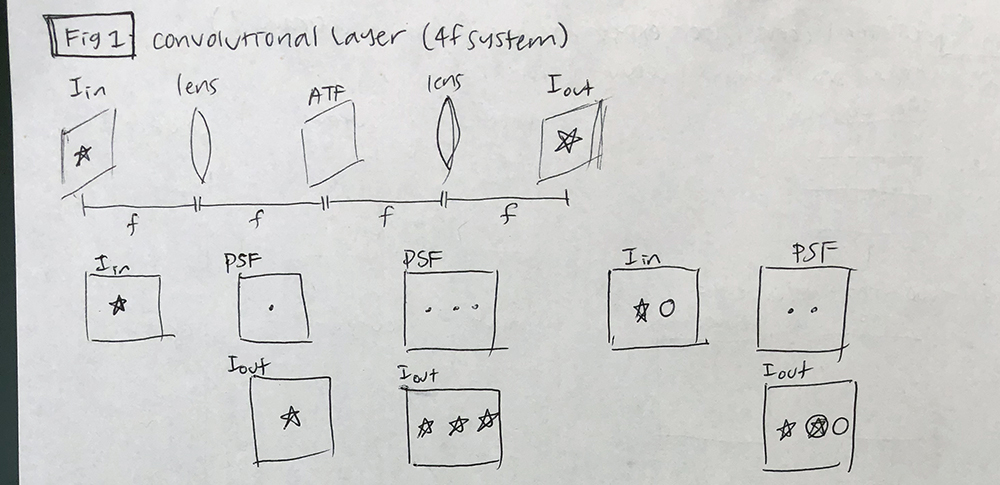 Fig 1 convolutional layer (4f system)
Iin lens ATF lens Iout
f f f f
Iin PSF PSF Iin PSF
Iout Iout Iout